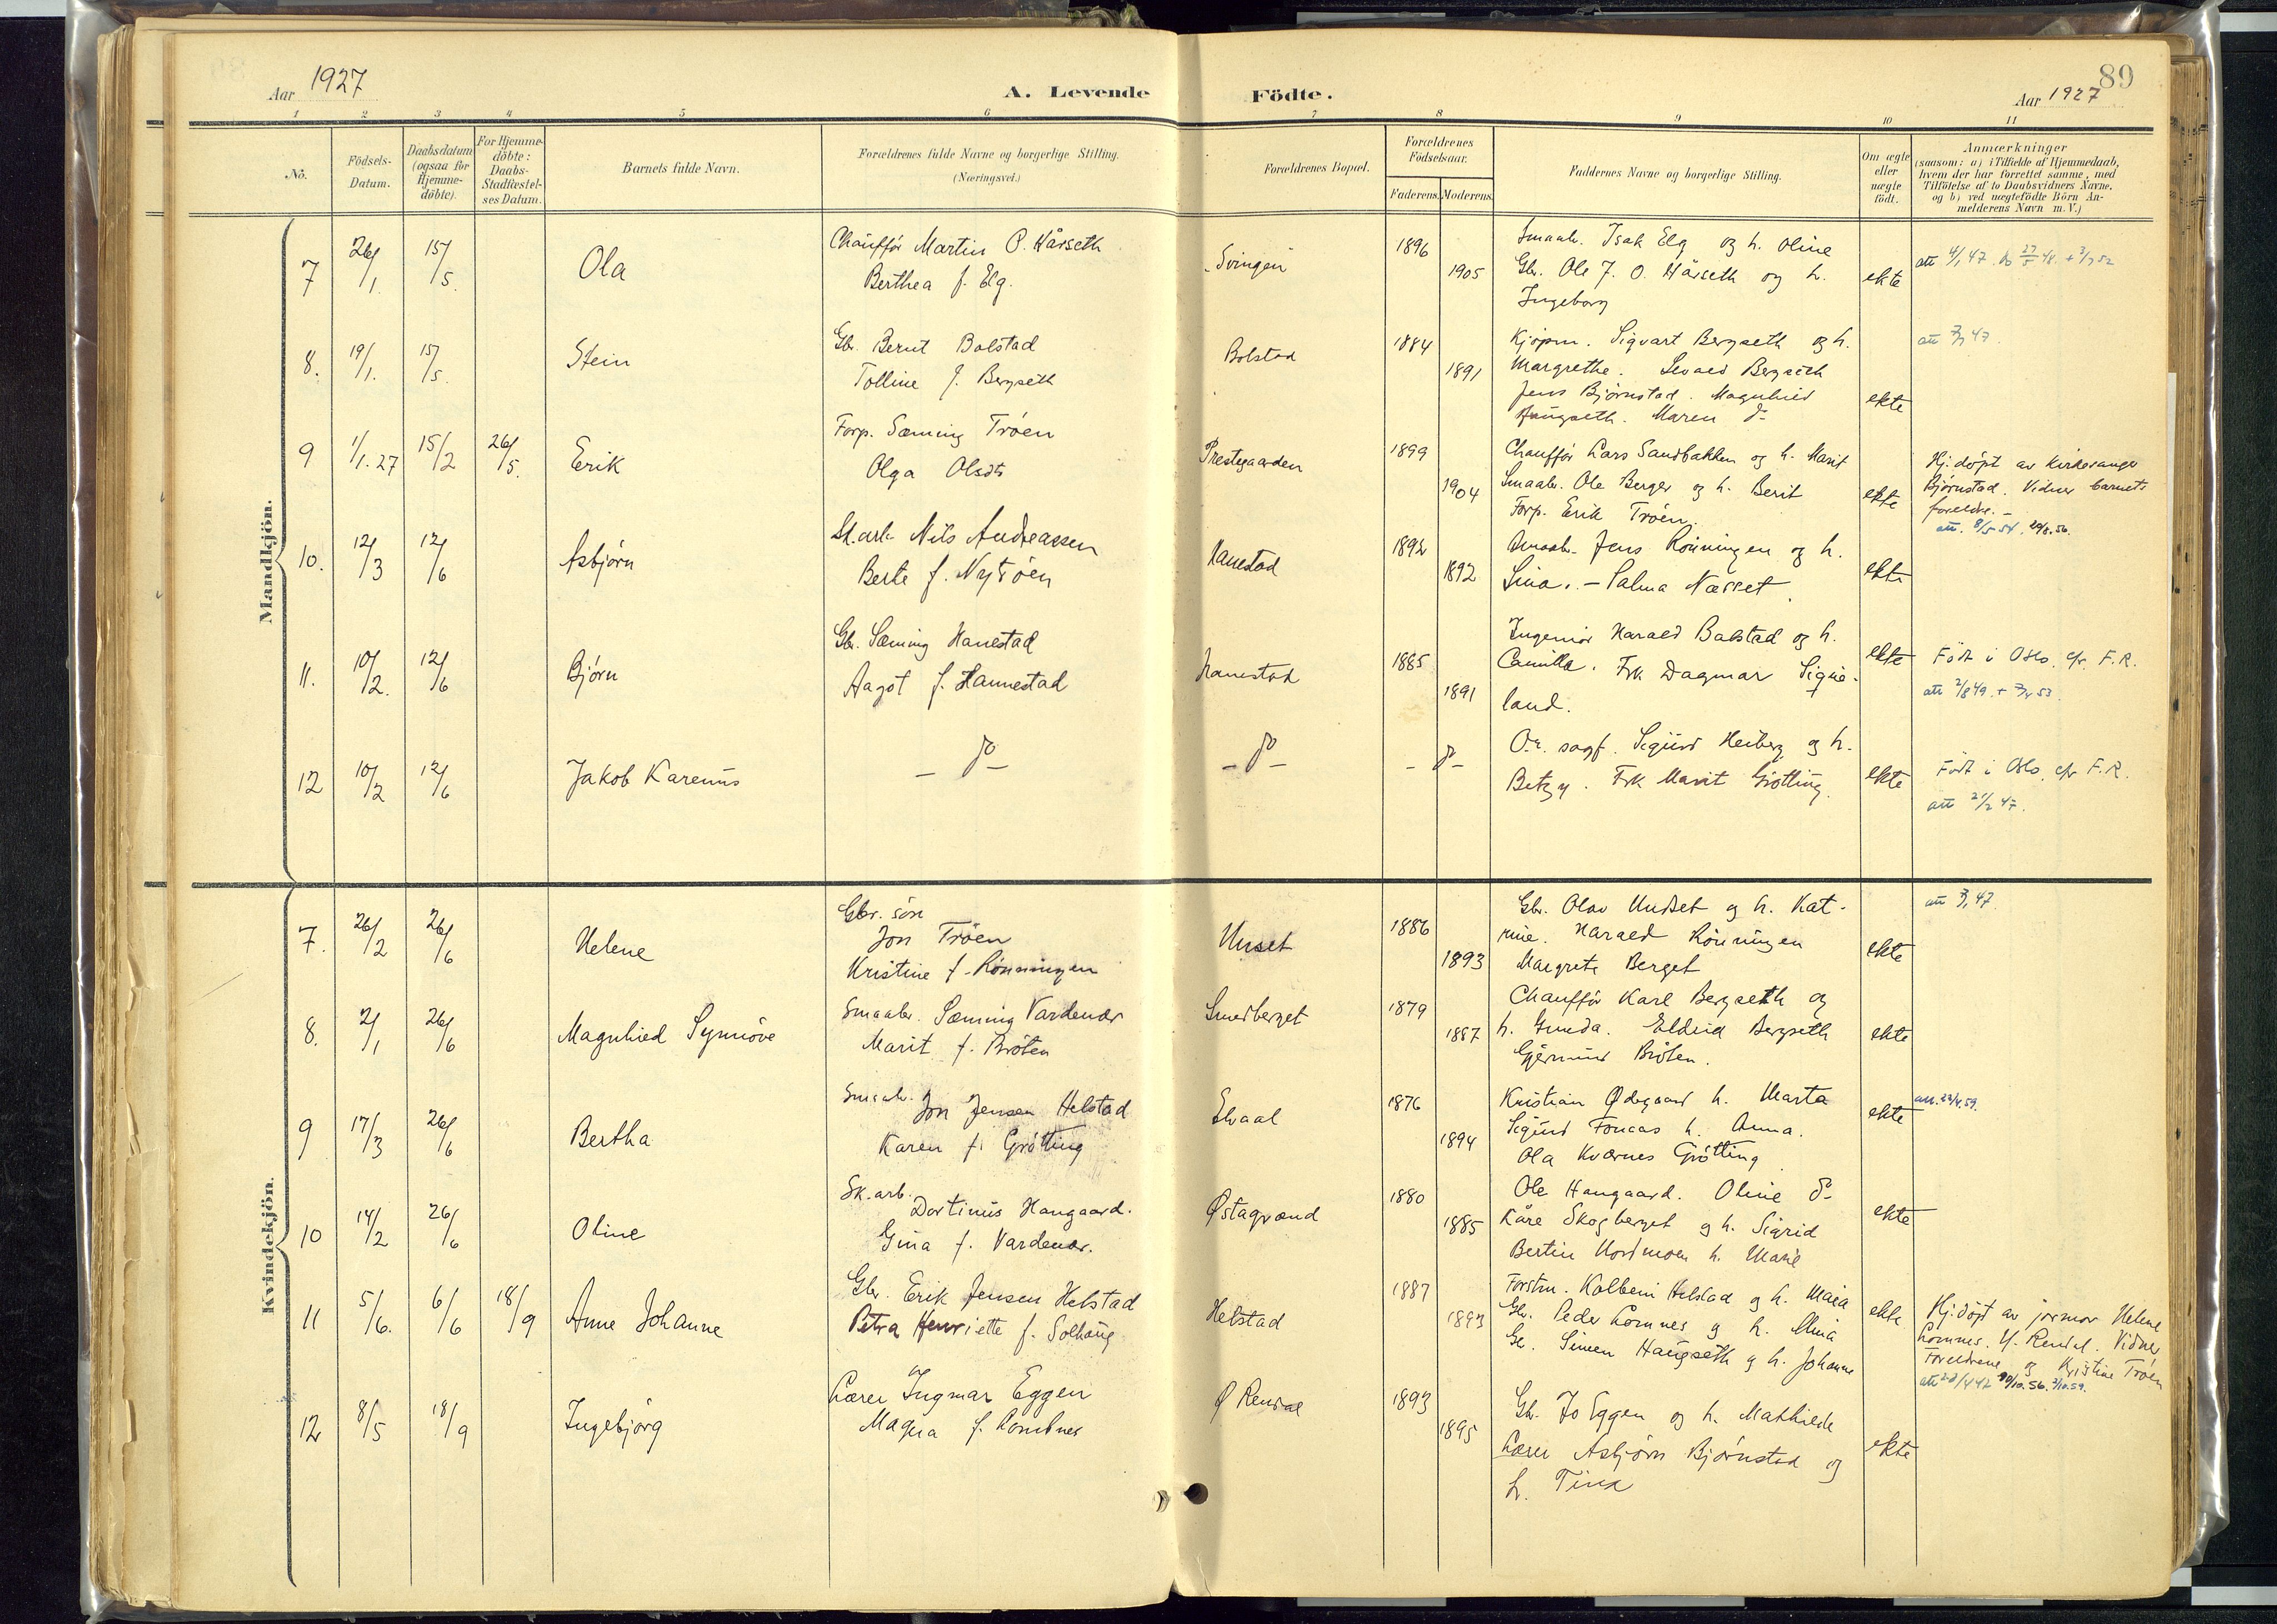 Aar 1927
A. Levende Födte.
89
Aar 1927
1 2 3 4 5 6 7 8 9 10 11
No.
Födsels-Datum.
Daabsdatum (ogsaa for Hjemme-döbte).
For Hjemme-döbte: Daabs-Stadfæstel-ses Datum.
Barnets fulde Navn.
Forældrenes fulde Navne og borgerlige Stilling.
(Næringsvei.)
Forældrenes Bopæl.
Forældrenes Födselsaar.
Faderens. Moderens.
Faddernes Navne og borgerlige Stilling.
Om ægte eller uægte födt.
Anmærkninger
(saasom: a) i Tilfælde af Hjemmedaab,
hvem der har forrettet samme, med
Tilföielse af to Daabsvidners Navne,
og b) ved uægtefödte Börn An-
melderens Navn m. V.)
Mandkjön.
7 26/1. 15/5. Ola
Chauffør Martin O. Hårseth
Berthea f. Elg.
Svingen 1896 1905
Smaabr. Isak Elg og h. Oline
Gbr. Ole J. O. Hårseth og h.
Ingeborg
ekte
att 4/1 47.
8. 19/1. 15/5. Stein
Gbr. Bernt Bolstad
Tolline f. Bergseth
Bolstad 1884 1891
Kjøpm. Sigvart Bergseth og h.
Margrethe. Bergseth
Jens Bjørnstad. Magnhild
Haugseth. Maren do
ekte
9 1/1. 27 15/2 26/5. Erik
Forp. Sæming Trøen
Olga Olsdtr
Prestegaarden 1899 1904
Chauffør Lars Sandbakken og h. Marit
Smaabr. Ole Berger og h. Berit
Forp. Erik Trøen.
ekte
Hj.døpt av kirkesanger
Bjørnstad. Vidner barnets
foreldre. –
att. 8/5 54. 29/8.56.
10. 12/3 12/6 Asbjørn
Sk.arb. Nils Andreassen
Berte f. Nytrøen
Hanestad 1892 1892
Smaabr. Jens Rønningen og h.
Lina. – Palma Næsset.
ekte
11. 10/2. 12/6 Bjørn
Gbr. Sæming Hanestad
Aagot f. Hannestad
Hanestad 1885 1891
Ingeniør Harald Bolstad og h.
Camilla. Frk Dagmar Signe-
land.
ekte
Født i Oslo, cfr. F.R.
att 2/8 49.
12 10/2 12/6 Jakob Karenus
– do –
– do –
– do –
O.r. sagf. Sigurd Heiberg og h.
Betzy. Frk Marit Grøtting.
ekte
Født i Oslo, cfr F.R.
att 21/2 47.
Kvindekjön.
7. 26/2 26/6 Helene
Gbr. søn
Jon Trøen
Kristine f. Rønningen
Unset 1886 1893
Gbr. Olav Undset og h. Kat-
rine. Harald Rønningen
Margrete Berget
ekte
8. 2/1 26/6 Magnhild Synnöve
Smaabr. Sæming Vardenær
Marit f. Bröten
Smedberget 1879 1887
Chauffør Karl Bergseth og
h. Gunda. Eldrid Bergseth
Gjermund Bröten.
ekte
9 17/3 26/6 Bertha
Smaabr. Jon Jensen Helstad
Karen f. Grøtting
Elvaal 1876 1894
Kristian Ødegaard h. Marta
Sigurd Fonaas h. Anna.
Ola Kværnes Grøtting
ekte
att. 23/4.59.
10 14/2 26/6 Oline
Sk.arb. Dortinus Haugaard.
Gina f. Vardenær.
Østagrend 1880 1885
Ole Haugaard. Oline do
Kåre Skogberget og h. Sigrid
Bertin Nordmoen h. Marie
ekte
11 5/6. 6/6 18/9 Anne Johanne
Gbr. Erik Jensen Helstad
Petra Henriette f. Solhaug
Helstad 1887 1893
Forstm. Kolbein Helstad og h. Maia
Gbr. Peder Lomnes og h. Mina
Gbr. Simen Haugseth og h. Johanne
ekte
Hj.døpt av jormor Helene
Lomnes. Y. Rendal. Vidner
Foreldrene og Kristine Trøen
12 8/5 18/9 Ingebjørg
Lærer Ingmar Eggen
Magna f. Lombnes
Ø Rendal 1893 1895
Gbr. Jo Eggen og h. Mathilde
Lærer Asbjørn Bjørnstad og
h. Tina
ekte